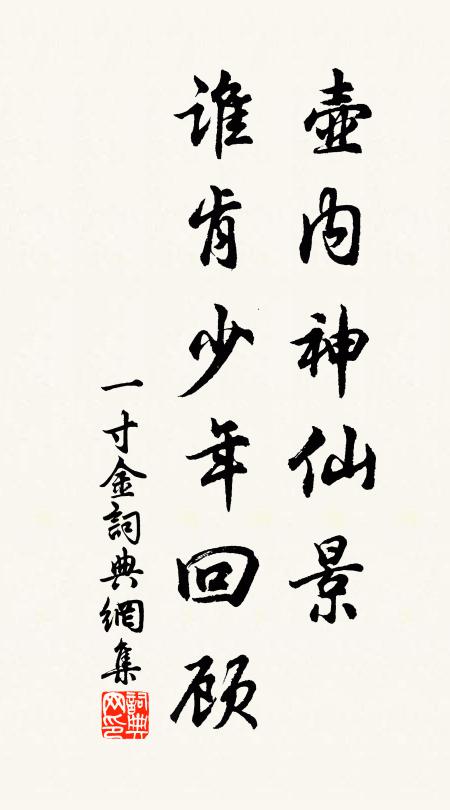 壺内神仙景
谁肯少年回顾
一寸金詞典網集
詞典网印